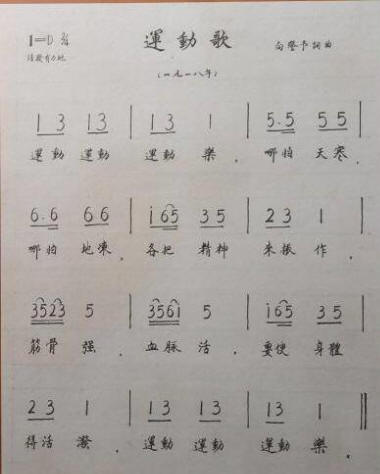 1=D 2/4 運動歌 向警予詞曲
活潑有力地
（一九一八年）
1 3 1 3 | 1 3 1 | 5. 5 5 5 |
運動 運動 運動 樂. 哪怕 天寒
6. 6 6 6 | i 65 3 5 | 2 3 1 |
哪怕 地凍. 各把 精神 來振 作.
3523 5 | 3561 5 | i 65 3 5 |
筋骨 强. 血脉 活. 要使 身體
2 3 1 | 1 3 1 3 | 1 3 1 ||
得活 潑. 運動 運動 運動 樂.